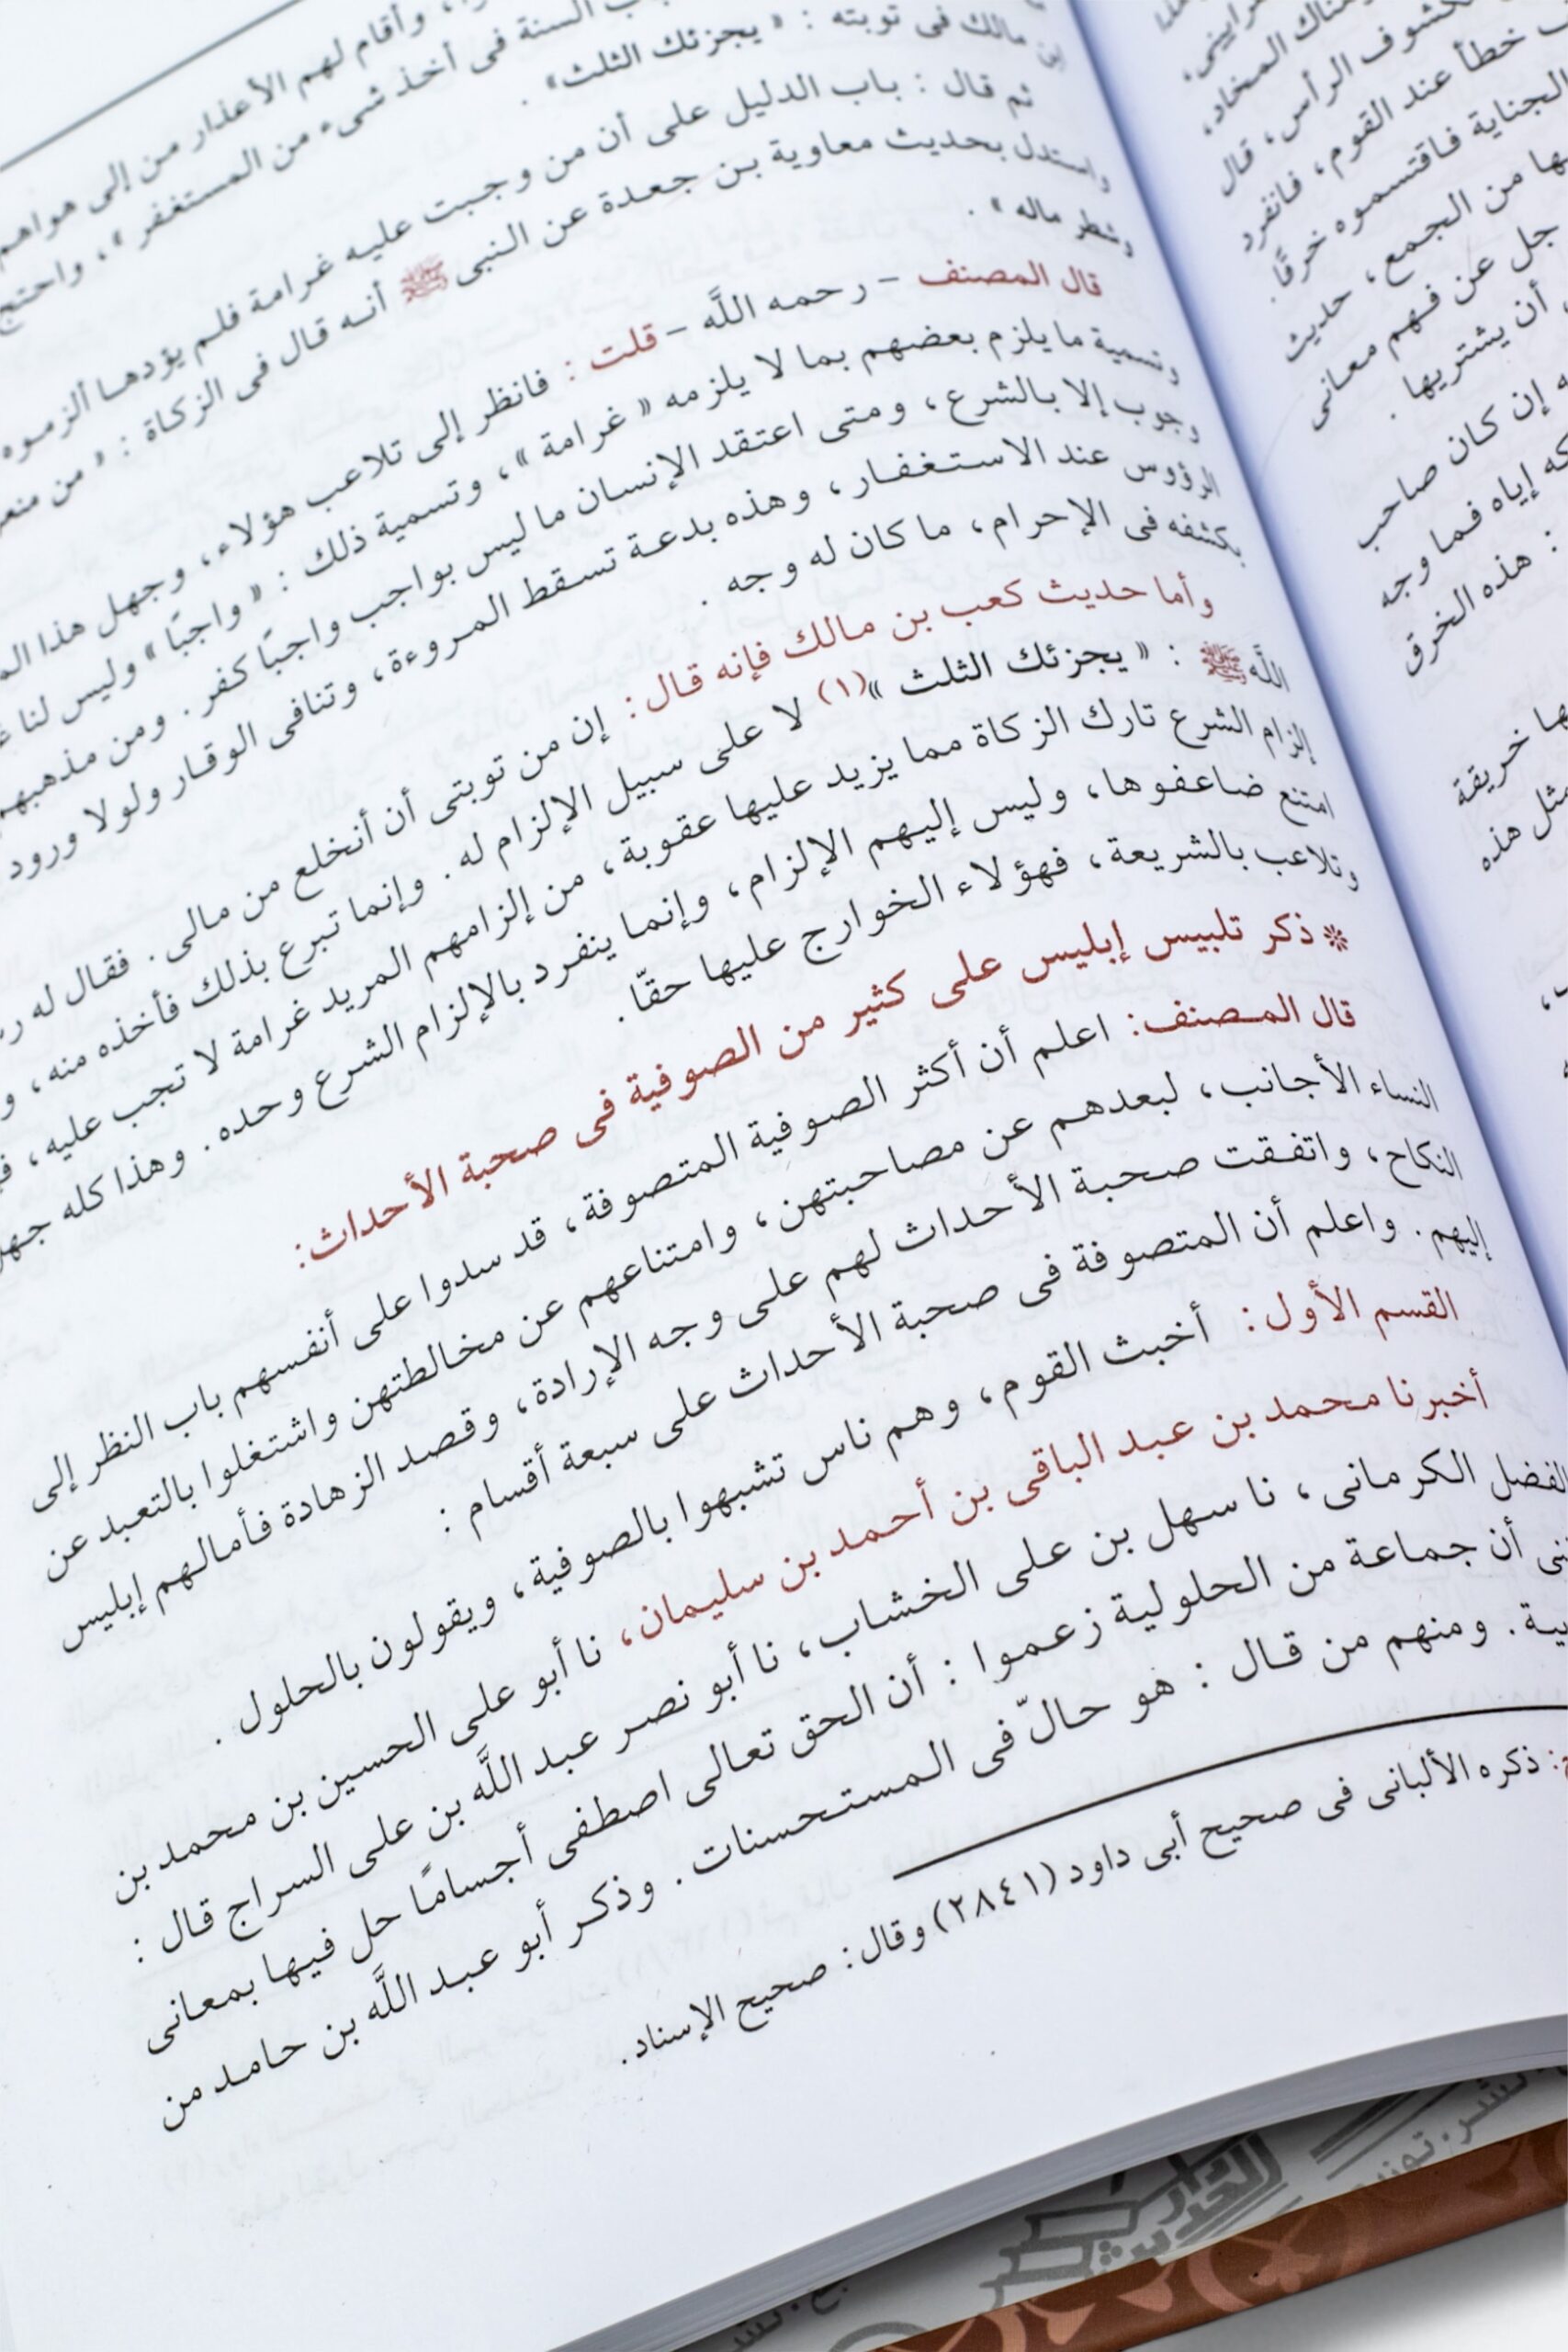 وأقام لهم الأعذار من إلى هواهم
السنة فى أخذ شىء من المستغفر »، واحتج
بن مالك فى توبته : « يجزئك الثلث» .
ثم قال : باب الدليل على أن من وجبت عليه غرامة فلم يؤدها ألزموه
واستدل بحديث معاوية بن جعدة عن النبى ﷺ أنه قال فى الزكاة : « من
وشطر ماله » .
قال المصنف – رحمه اللَّه – قلت : فانظر إلى تلاعب هؤلاء، وجهل هذا
وتسمية ما يلزم بعضهم بما لا يلزمه « غرامة »، وتسمية ذلك : « واجبًا » وليس لنا
وجوب إلا بالشرع، ومتى اعتقد الإنسان ما ليس بواجب واجبًا كفر. ومن مذهبهم
الرؤوس عند الاستغفار، وهذه بدعة تسقط المروءة، وتنافى الوقار ولولا ورود
بكشفه فى الإحرام، ما كان له وجه .
وأما حديث كعب بن مالك فإنه قال: إن من توبتى أن أنخلع من مالى. فقال له
اللَّه ﷺ : « يجزئك الثلث »(١) لا على سبيل الإلزام له. وإنما تبرع بذلك فأخذه منه،
إلزام الشرع تارك الزكاة مما يزيد عليها عقوبة، من إلزامهم المريد غرامة لا تجب عليه،
امتنع ضاعفوها، وليس إليهم الإلزام، وإنما ينفرد بالإلزام الشرع وحده. وهذا كله
وتلاعب بالشريعة، فهؤلاء الخوارج عليها حقّا.
* ذكر تلبيس إبليس على كثير من الصوفية فى صحبة الأحداث:
قال المصنف: اعلم أن أكثر الصوفية المتصوفة، قد سدوا على أنفسهم باب النظر إلى
النساء الأجانب، لبعدهم عن مصاحبتهن، وامتناعهم عن مخالطتهن واشتغلوا بالتعبد عن
النكاح، واتفقت صحبة الأحداث لهم على وجه الإرادة، وقصد الزهادة فأمالهم إبليس
إليهم. واعلم أن المتصوفة فى صحبة الأحداث على سبعة أقسام :
القسم الأول: أخبث القوم، وهم ناس تشبهوا بالصوفية، ويقولون بالحلول .
أخبرنا محمد بن عبد الباقى بن أحمد بن سليمان، نا أبو على الحسين بن محمد بن
الفضل الكرمانى، نا سهل بن على الخشاب، نا أبو نصر عبد اللَّه بن على السراج قال :
أن جماعة من الحلولية زعموا : أن الحق تعالى اصطفى أجسامًا حل فيها بمعانى
ومنهم من قال : هو حالّ فى المستحسنات. وذكر أبو عبد اللَّه بن حامد من
ذكره الألبانى فى صحيح أبى داود (٢٨٤١) وقال: صحيح الإسناد.
كشوف الرأس، قال
خطأ عند القوم، فانفرد
الجناية فاقتسموه خرقًا.
من الجمع، حديث
جل عن فهم معانى
أن يشتريها .
إن كان صاحب
إياه فما وجه
: هذه الخرق
خريقة
مثل هذه
دار الحديث